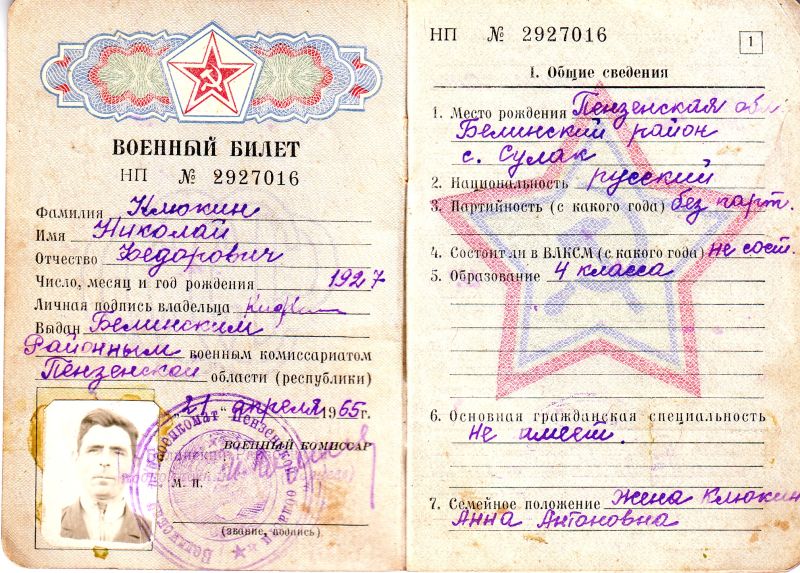 ВОЕННЫЙ БИЛЕТ
НП № 2927016
Фамилия Клюкин
Имя Николай
Отчество Федорович
Число, месяц и год рождения 1927
Личная подпись владельца
Выдан Белинским
Районным военным комиссариатом
Пензенской области (республики)
"21" апреля 1965 г.
ВОЕННЫЙ КОМИССАР
М. П.
(звание, подпись)
НП № 2927016
1
I. Общие сведения
1. Место рождения Пензенская обл
Белинский район
с. Сулак
2. Национальность русский
3. Партийность (с какого года) без парт.
4. Состоит ли в ВЛКСМ (с какого года) не сост.
5. Образование 4 класса
6. Основная гражданская специальность
не имеет.
7. Семейное положение жена Клюкин
Анна Антоновна